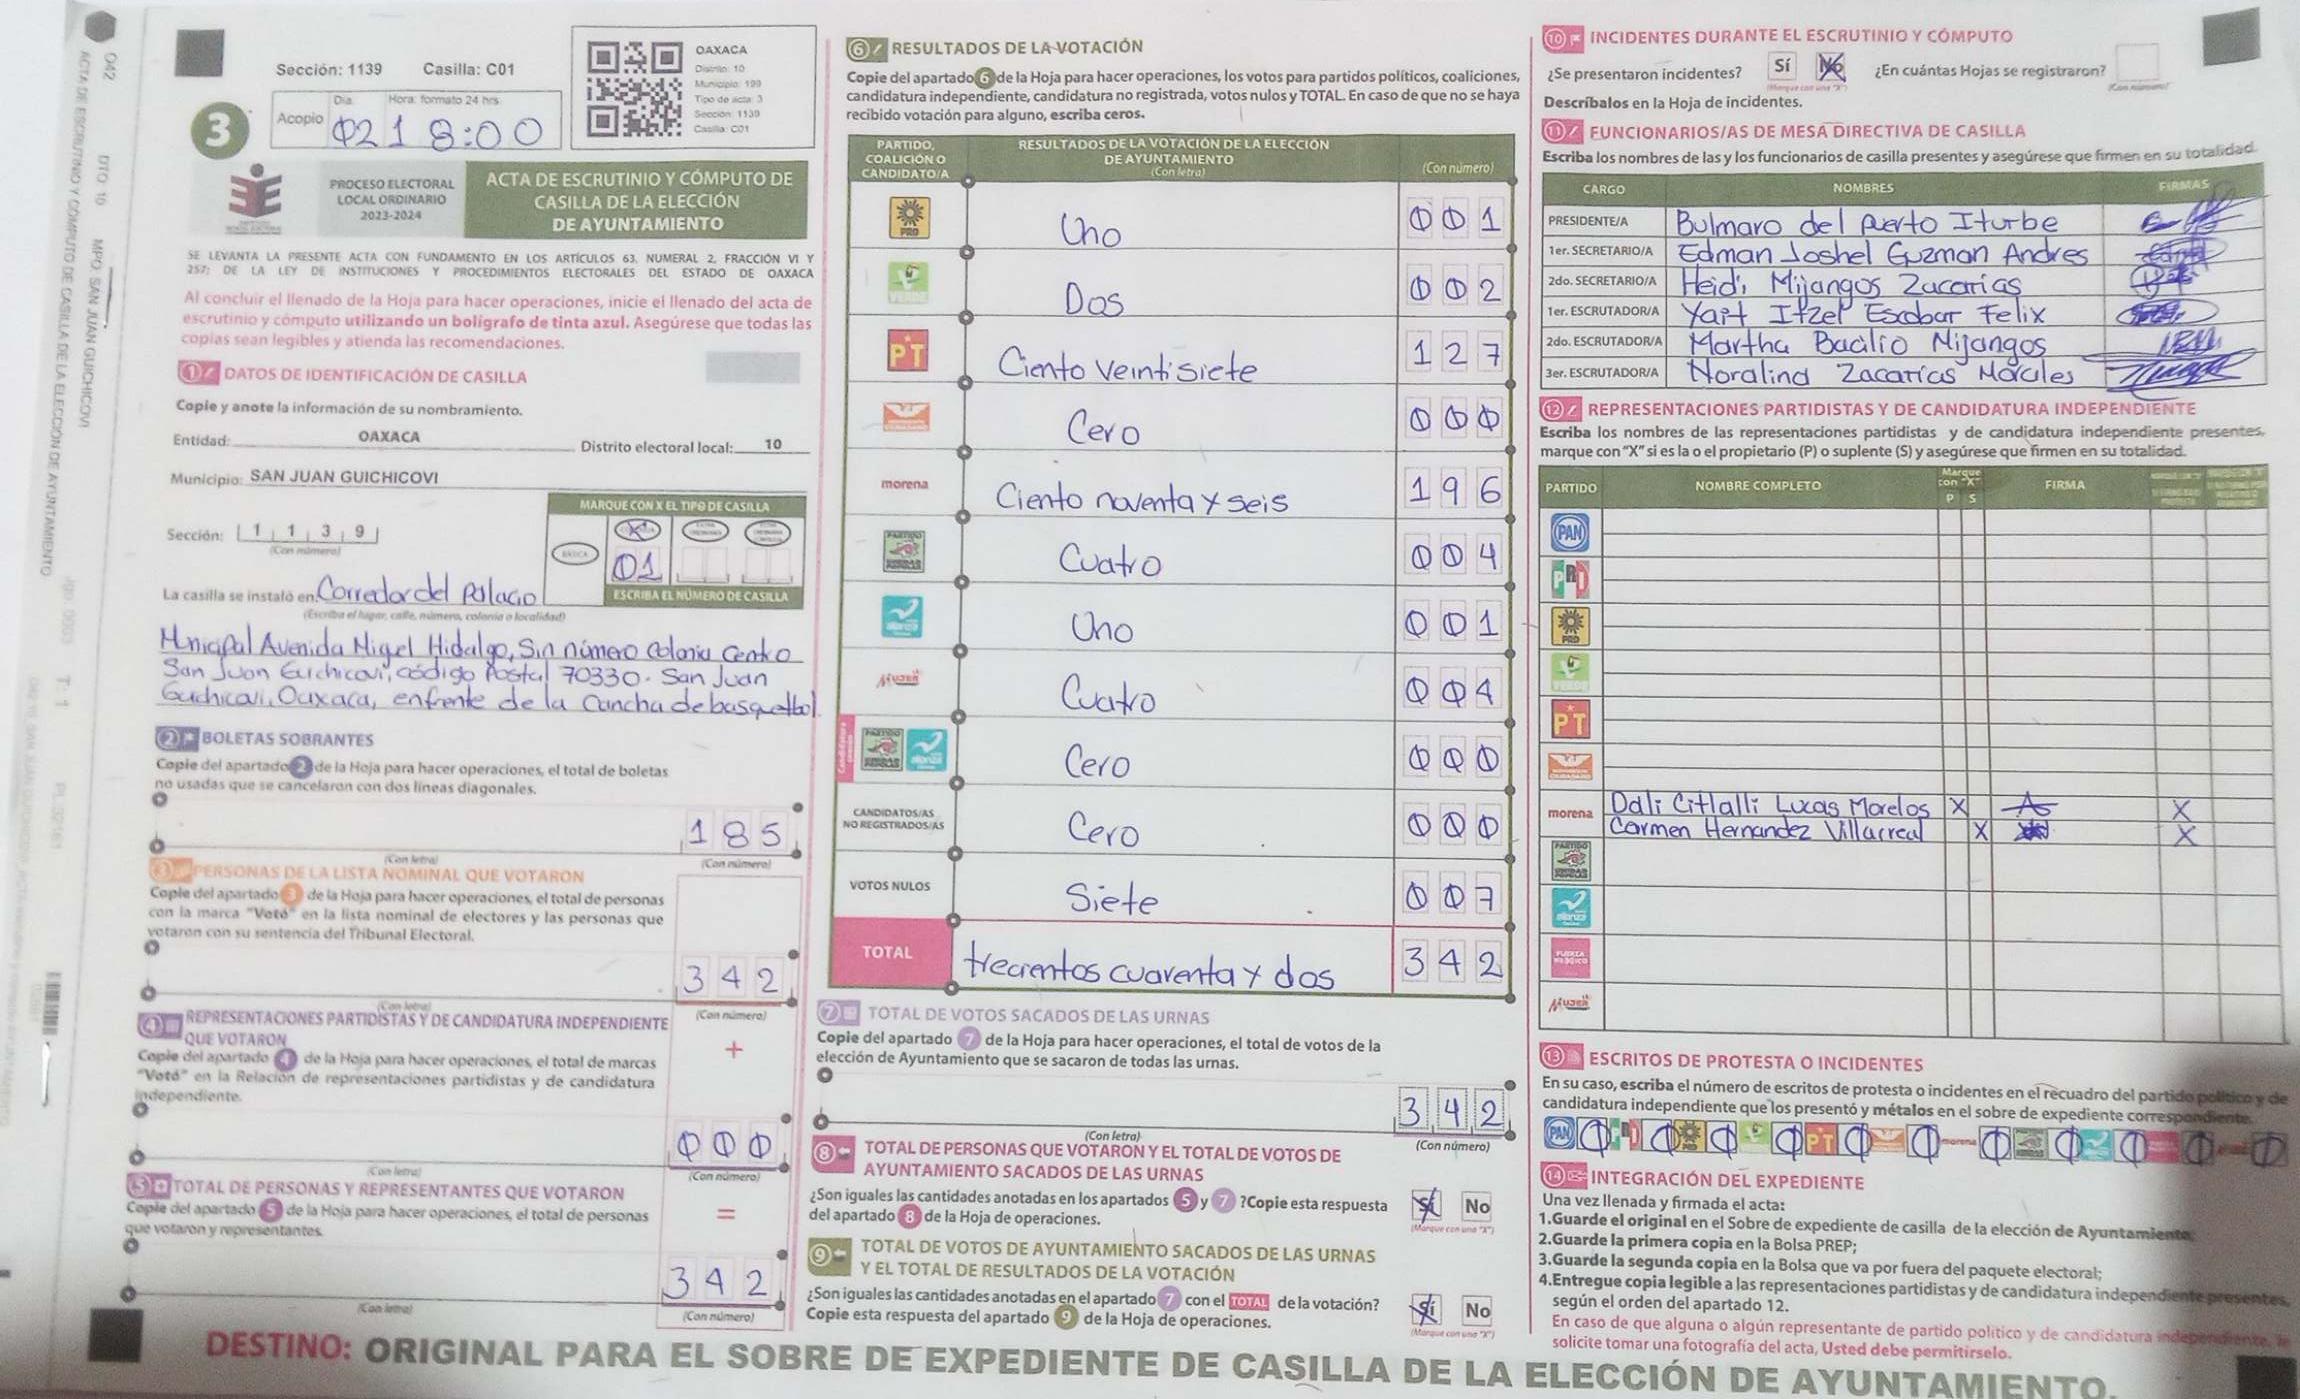 042 DTO. 10 MPO. SAN JUAN GUICHICOVI
ACTA DE ESCRUTINIO Y CÓMPUTO DE CASILLA DE LA ELECCIÓN DE AYUNTAMIENTO
Sección: 1139 Casilla: C01
3
Acopio
Día Hora: formato 24 hrs
021 8:00
OAXACA
Distrito: 10
Municipio: 199
Tipo de acta: 3
Sección: 1139
Casilla: C01
PROCESO ELECTORAL
LOCAL ORDINARIO
2023-2024
ACTA DE ESCRUTINIO Y CÓMPUTO DE
CASILLA DE LA ELECCIÓN
DE AYUNTAMIENTO
SE LEVANTA LA PRESENTE ACTA CON FUNDAMENTO EN LOS ARTÍCULOS 63, NUMERAL 2, FRACCIÓN VI Y
257; DE LA LEY DE INSTITUCIONES Y PROCEDIMIENTOS ELECTORALES DEL ESTADO DE OAXACA
Al concluir el llenado de la Hoja para hacer operaciones, inicie el llenado del acta de
escrutinio y cómputo utilizando un bolígrafo de tinta azul. Asegúrese que todas las
copias sean legibles y atienda las recomendaciones.
1 DATOS DE IDENTIFICACIÓN DE CASILLA
Copie y anote la información de su nombramiento.
Entidad: OAXACA Distrito electoral local: 10
Municipio: SAN JUAN GUICHICOVI
MARQUE CON X EL TIPO DE CASILLA
Sección: 1 1 3 9
(Con número)
BÁSICA
X
01
ESCRIBA EL NÚMERO DE CASILLA
La casilla se instaló en: Corredor del Palacio
(Escriba el lugar, calle, número, colonia o localidad)
Municipal Avenida Miguel Hidalgo, Sin número Colonia Centro
San Juan Guichicovi, código Postal 70330. San Juan
Guichicovi, Oaxaca, enfrente de la Cancha de basquetbol.
2 BOLETAS SOBRANTES
Copie del apartado 2 de la Hoja para hacer operaciones, el total de boletas
no usadas que se cancelaron con dos líneas diagonales.
185
(Con letra) (Con número)
3 PERSONAS DE LA LISTA NOMINAL QUE VOTARON
Copie del apartado 3 de la Hoja para hacer operaciones, el total de personas
con la marca "Votó" en la lista nominal de electores y las personas que
votaron con su sentencia del Tribunal Electoral.
342
(Con letra) (Con número)
4 REPRESENTACIONES PARTIDISTAS Y DE CANDIDATURA INDEPENDIENTE
QUE VOTARON
+
Copie del apartado 4 de la Hoja para hacer operaciones, el total de marcas
"Votó" en la Relación de representaciones partidistas y de candidatura
independiente.
000
(Con letra) (Con número)
5 TOTAL DE PERSONAS Y REPRESENTANTES QUE VOTARON
=
Copie del apartado 5 de la Hoja para hacer operaciones, el total de personas
que votaron y representantes.
342
(Con letra) (Con número)
6 RESULTADOS DE LA VOTACIÓN
Copie del apartado 6 de la Hoja para hacer operaciones, los votos para partidos políticos, coaliciones,
candidatura independiente, candidatura no registrada, votos nulos y TOTAL. En caso de que no se haya
recibido votación para alguno, escriba ceros.
PARTIDO,
COALICIÓN O
CANDIDATO/A
RESULTADOS DE LA VOTACIÓN DE LA ELECCIÓN
DE AYUNTAMIENTO
(Con letra)
(Con número)
PRD Uno 001
VERDE Dos 002
PT Ciento Veintisiete 127
Cero 000
morena Ciento noventa y seis 196
Cuatro 004
Uno 001
Mujer Cuatro 004
Cero 000
CANDIDATOS/AS
NO REGISTRADOS/AS Cero 000
VOTOS NULOS Siete 007
TOTAL trecientos cuarenta y dos 342
7 TOTAL DE VOTOS SACADOS DE LAS URNAS
Copie del apartado 7 de la Hoja para hacer operaciones, el total de votos de la
elección de Ayuntamiento que se sacaron de todas las urnas.
342
(Con letra) (Con número)
8 TOTAL DE PERSONAS QUE VOTARON Y EL TOTAL DE VOTOS DE
AYUNTAMIENTO SACADOS DE LAS URNAS
¿Son iguales las cantidades anotadas en los apartados 5 y 7 ?Copie esta respuesta
del apartado 8 de la Hoja de operaciones.
Sí No
(Marque con una "X")
9 TOTAL DE VOTOS DE AYUNTAMIENTO SACADOS DE LAS URNAS
Y EL TOTAL DE RESULTADOS DE LA VOTACIÓN
¿Son iguales las cantidades anotadas en el apartado 7 con el TOTAL de la votación?
Copie esta respuesta del apartado 9 de la Hoja de operaciones.
Sí No
(Marque con una "X")
10 INCIDENTES DURANTE EL ESCRUTINIO Y CÓMPUTO
¿Se presentaron incidentes? Sí No ¿En cuántas Hojas se registraron?
(Marque con una "X") (Con número)
Descríbalos en la Hoja de incidentes.
11 FUNCIONARIOS/AS DE MESA DIRECTIVA DE CASILLA
Escriba los nombres de las y los funcionarios de casilla presentes y asegúrese que firmen en su totalidad.
CARGO NOMBRES FIRMAS
PRESIDENTE/A Bulmaro del puerto Iturbe
1er. SECRETARIO/A Edman Joshel Guzman Andres
2do. SECRETARIO/A Heidi Mijangos Zacarias
1er. ESCRUTADOR/A Yait Itzel Escobar Felix
2do. ESCRUTADOR/A Martha Bacilio Mijangos
3er. ESCRUTADOR/A Noralind Zacarias Morales
12 REPRESENTACIONES PARTIDISTAS Y DE CANDIDATURA INDEPENDIENTE
Escriba los nombres de las representaciones partidistas y de candidatura independiente presentes,
marque con "X" si es la o el propietario (P) o suplente (S) y asegúrese que firmen en su totalidad.
PARTIDO NOMBRE COMPLETO Marque con "X" P S FIRMA
PAN
PRI
PRD
VERDE
PT
morena Dali Citlalli Lucas Morelos X X
Carmen Hernandez Villarreal X X
Mujer
13 ESCRITOS DE PROTESTA O INCIDENTES
En su caso, escriba el número de escritos de protesta o incidentes en el recuadro del partido político y de
candidatura independiente que los presentó y métalos en el sobre de expediente correspondiente.
PAN 0 PRI 0 PRD 0 0 PT 0 0 morena 0 0 0 0 0
14 INTEGRACIÓN DEL EXPEDIENTE
Una vez llenada y firmada el acta:
1.Guarde el original en el Sobre de expediente de casilla de la elección de Ayuntamiento;
2.Guarde la primera copia en la Bolsa PREP;
3.Guarde la segunda copia en la Bolsa que va por fuera del paquete electoral;
4.Entregue copia legible a las representaciones partidistas y de candidatura independiente presentes,
según el orden del apartado 12.
En caso de que alguna o algún representante de partido político y de candidatura independiente, le
solicite tomar una fotografía del acta, Usted debe permitírselo.
DESTINO: ORIGINAL PARA EL SOBRE DE EXPEDIENTE DE CASILLA DE LA ELECCIÓN DE AYUNTAMIENTO